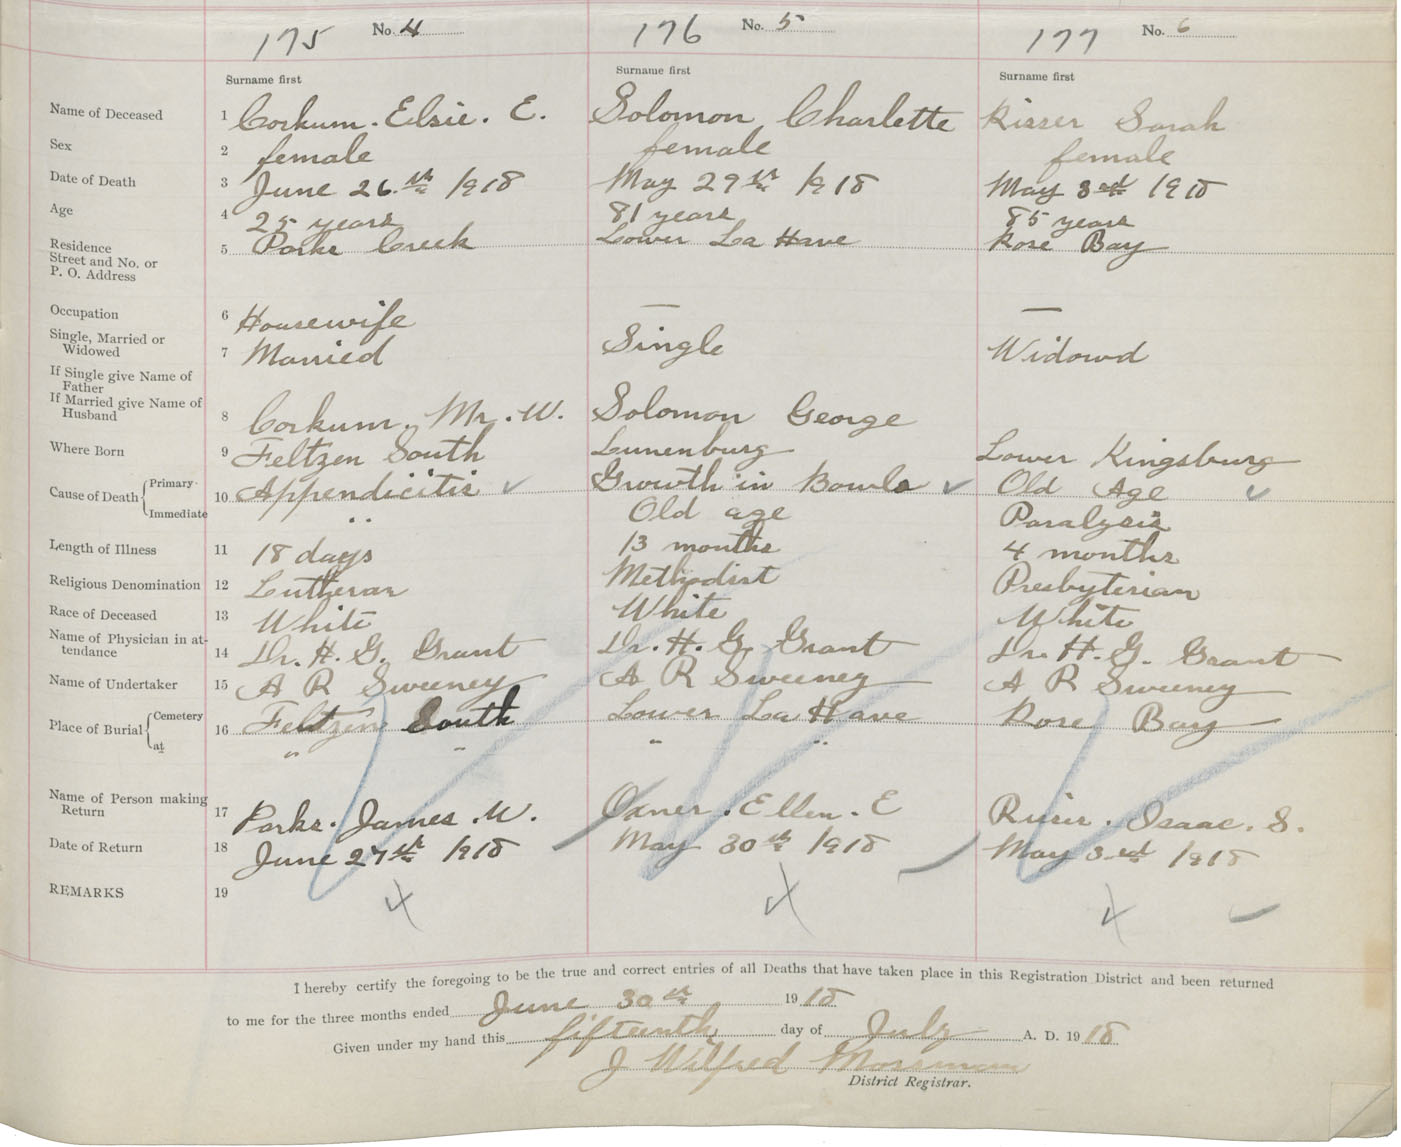 175 No. 4 176 No. 5 177 No. 6
Surname first Surname first Surname first
Name of Deceased 1 Corkum. Elsie. E. Solomon, Charlette Risser Sarah
Sex 2 female female female
Date of Death 3 June 26.th 1918 May 29th 1918 May 3rd 1918
Age 4 25 years 81 years 85 years
Residence Street and No. or P. O. Address 5 Parks Creek Lower La Have Rose Bay
Occupation 6 Housewife — —
Single, Married or Widowed 7 Married Single Widowd
If Single give Name of Father
If Married give Name of Husband 8 Corkum. Mr. W. Solomon George
Where Born 9 Feltzen South Lunenburg Lower Kingsburg
Cause of Death Primary 10 Appendicitis ✓ Growth in Bowls ✓ Old Age ✓
Immediate " Old age Paralysis
Length of Illness 11 18 days 13 months 4 months
Religious Denomination 12 Lutheran Methodist Presbyterian
Race of Deceased 13 White White White
Name of Physician in attendance 14 Dr. H. G. Grant Dr. H. G. Grant Dr. H. G. Grant
Name of Undertaker 15 A R Sweeney A R Sweeney A R Sweeney
Place of Burial Cemetery 16 Feltzen South Lower La Have Rose Bay
at " " " "
Name of Person making Return 17 Parks. James. W. Oxner. Ellen. E Risser. Isaac. S.
Date of Return 18 June 27th 1918 May 30th 1918 May 3rd 1918
REMARKS 19
I hereby certify the foregoing to be the true and correct entries of all Deaths that have taken place in this Registration District and been returned
to me for the three months ended June 30th 1918
Given under my hand this fifteenth day of July A. D. 1918
J Wilfred Mossman
District Registrar.